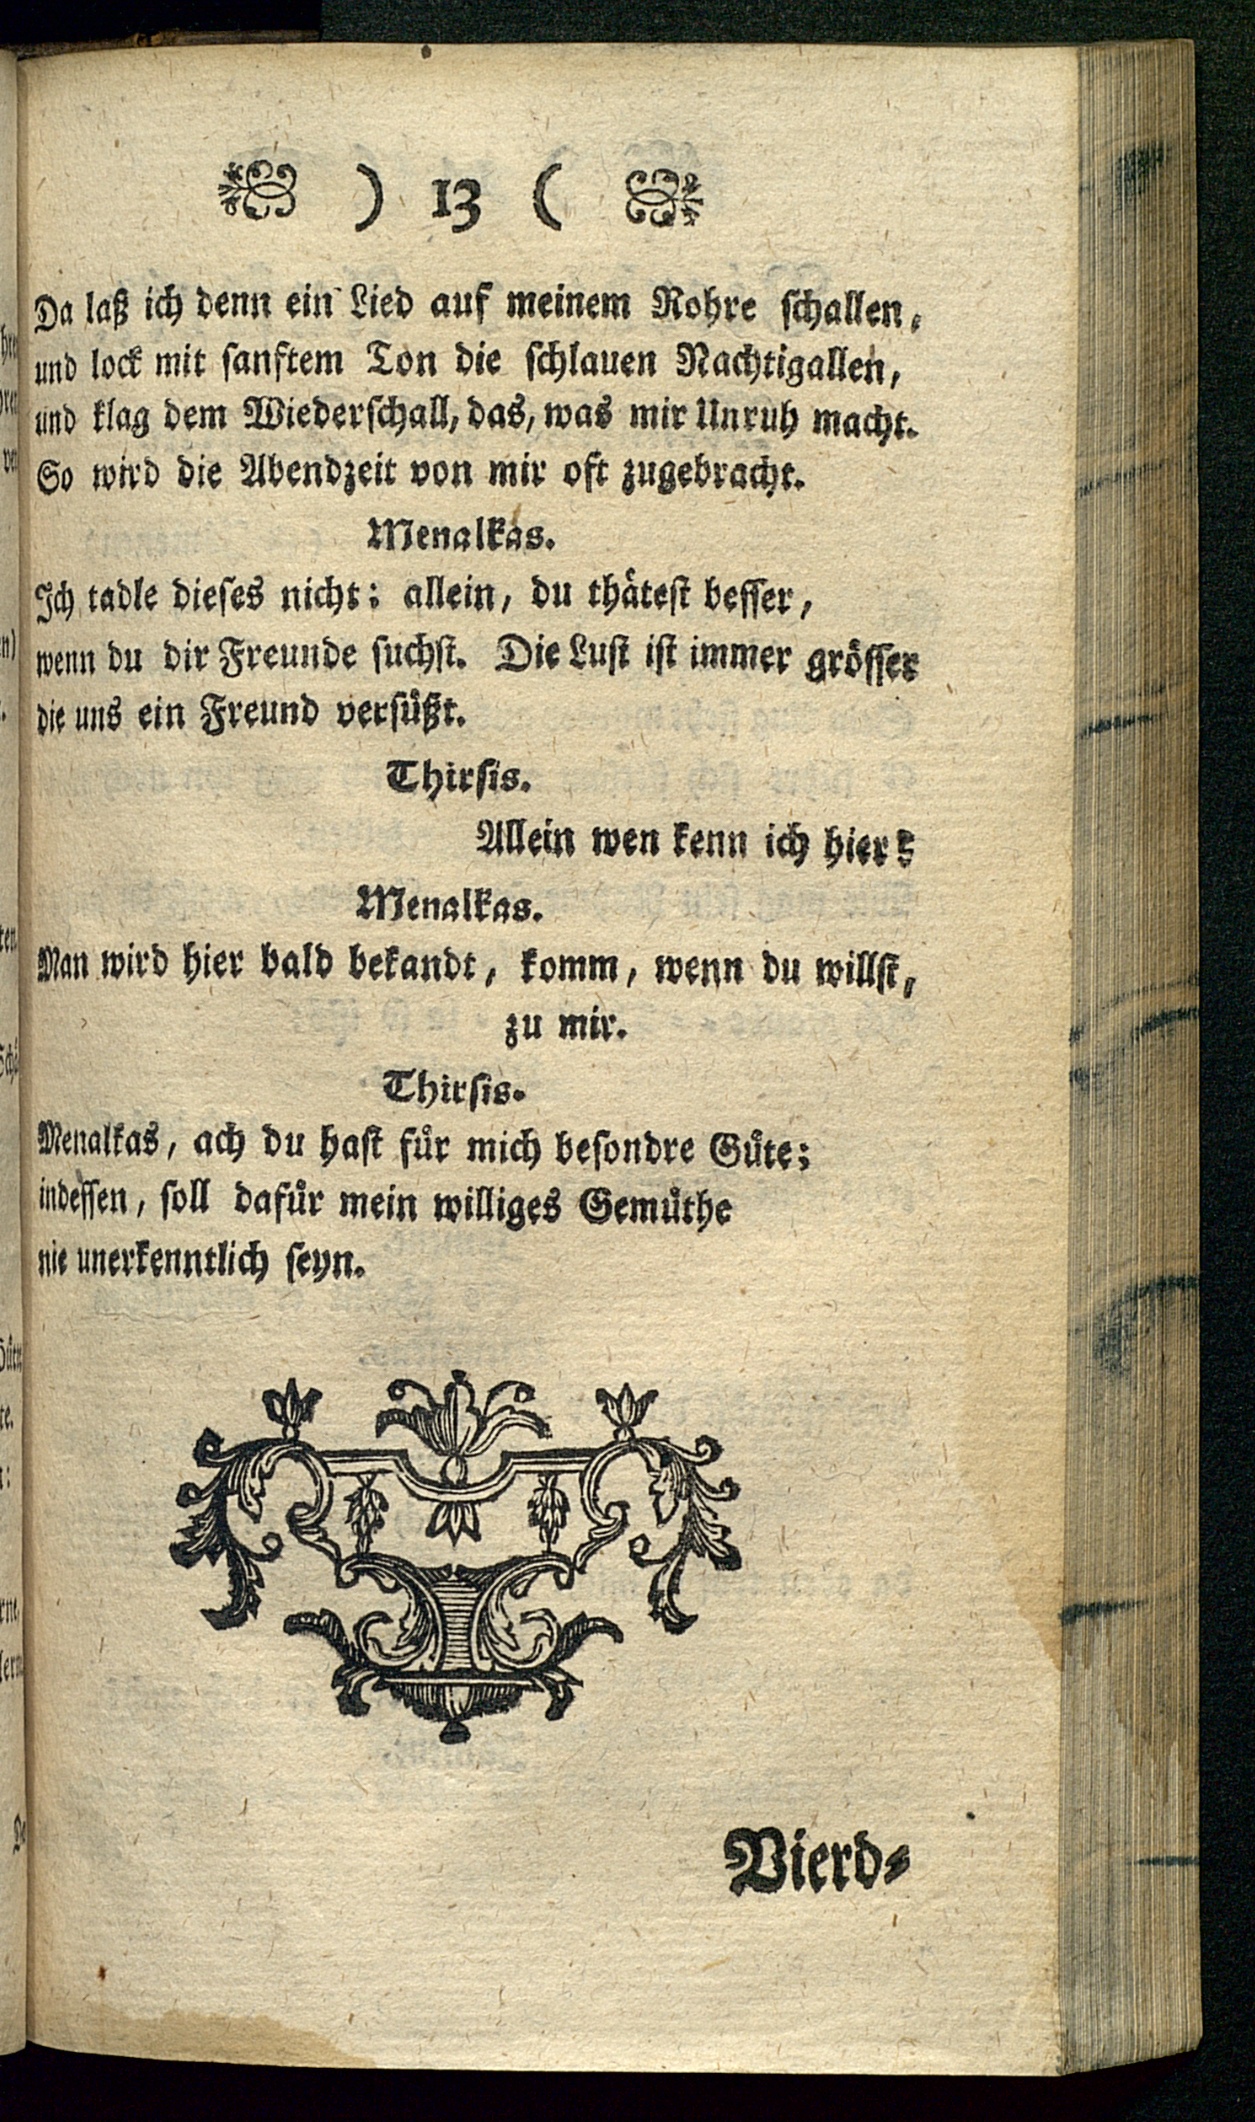 ) 13 (
Da laß ich denn ein Lied auf meinem Rohre schallen,
und lock mit sanftem Ton die schlauen Nachtigallen,
und klag dem Wiederschall, das, was mir Unruh macht.
So wird die Abendzeit von mir oft zugebracht.
Menalkas.
Ich tadle dieses nicht: allein, du thätest besser,
wenn du dir Freunde suchst. Die Lust ist immer grösser
die uns ein Freund versüßt.
Thirsis.
Allein wen kenn ich hier?
Menalkas.
Man wird hier bald bekandt, komm, wenn du willst,
zu mir.
Thirsis.
Menalkas, ach du hast für mich besondre Güte;
indessen, soll dafür mein williges Gemüthe
nie unerkenntlich seyn.
Vierd-